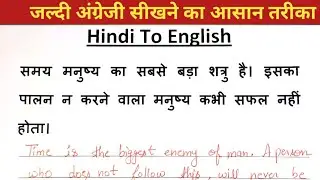 जल्दी अंग्रेजी सीखने का आसान तरीका
Hindi To English
समय मनुष्य का सबसे बड़ा शत्रु है। इसका
पालन न करने वाला मनुष्य कभी सफल नहीं
होता।
Time is the biggest enemy of man. A person
who does not follow this, will never be